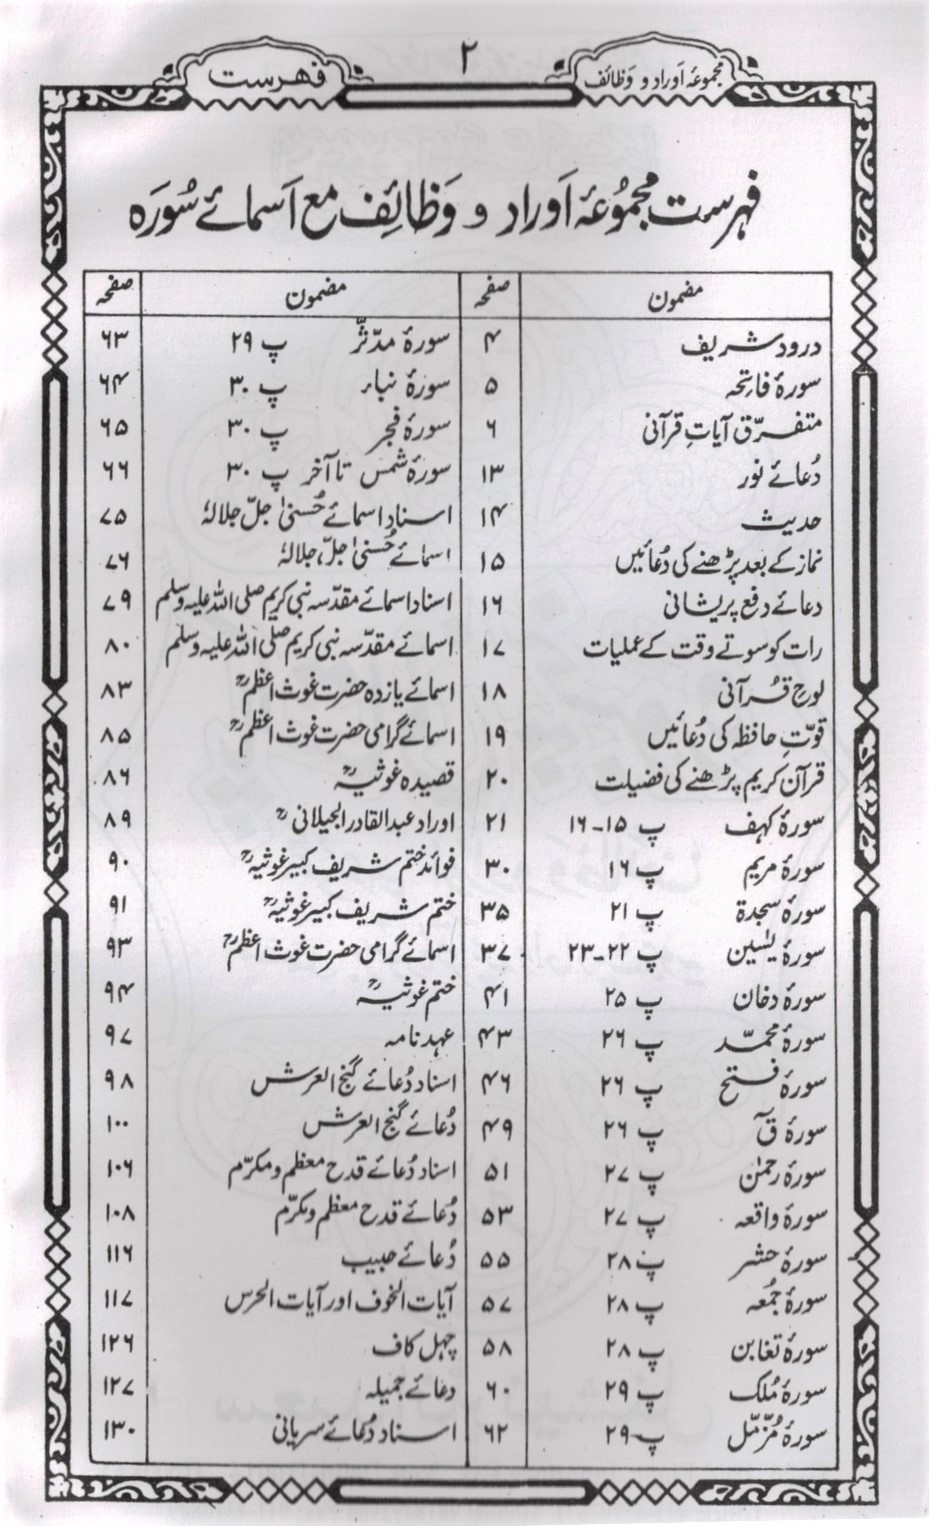 مجموعۂ اَوراد و وظائف
۲
فہرست
فہرست مجموُعۂ اَوراد و وَظائِف مع اَسمائے سُورَہ
مضمون صفحہ
درود شریف ۴
سورۂ فاتحہ ۵
متفرّق آیاتِ قرآنی ۶
دُعائے نور ۱۳
حدیث ۱۴
نماز کے بعد پڑھنے کی دُعائیں ۱۵
دعائے دفع پریشانی ۱۶
رات کو سوتے وقت کے عملیات ۱۷
لوحِ قرآنی ۱۸
قوّتِ حافظہ کی دُعائیں ۱۹
قرآن کریم پڑھنے کی فضیلت ۲۰
سورۂ کہف پ ۱۵-۱۶ ۲۱
سورۂ مریم پ ۱۶ ۳۰
سورۂ سجدۃ پ ۲۱ ۳۵
سورۂ یٰسین پ ۲۲-۲۳ ۳۷
سورۂ دخان پ ۲۵ ۴۱
سورۂ محمّد پ ۲۶ ۴۳
سورۂ فتح پ ۲۶ ۴۶
سورۂ قٓ پ ۲۶ ۴۹
سورۂ رحمٰن پ ۲۷ ۵۱
سورۂ واقعہ پ ۲۷ ۵۳
سورۂ حشر پ ۲۸ ۵۵
سورۂ جمُعہ پ ۲۸ ۵۷
سورۂ تغابن پ ۲۸ ۵۸
سورۂ مُلک پ ۲۹ ۶۰
سورۂ مُزّمّل پ ۲۹ ۶۲
مضمون صفحہ
سورۂ مدّثّر پ ۲۹ ۶۳
سورۂ نباء پ ۳۰ ۶۴
سورۂ فجر پ ۳۰ ۶۵
سورۂ شمس تا آخر پ ۳۰ ۶۶
اسناد اسمائے حُسنیٰ جلّ جلالہٗ ۷۵
اسمائے حُسنیٰ جلّ جلالہٗ ۷۶
اسناد اسمائے مقدّسہ نبی کریم صلی اللہ علیہ وسلم ۷۹
اسمائے مقدّسہ نبی کریم صلی اللہ علیہ وسلم ۸۰
اسمائے یازدہ حضرت غوث اعظمؒ ۸۳
اسمائے گرامی حضرت غوث اعظمؒ ۸۵
قصیدہ غوثیہؒ ۸۶
اوراد عبدالقادر الجیلانیؒ ۸۹
فوائد ختم شریف کبیر غوثیہؒ ۹۰
ختم شریف کبیر غوثیہؒ ۹۱
اسمائے گرامی حضرت غوث اعظمؒ ۹۳
ختم غوثیہؒ ۹۴
عہد نامہ ۹۷
اسناد دُعائے گنج العرش ۹۸
دُعائے گنج العرش ۱۰۰
اسناد دُعائے قدح معظم و مکرّم ۱۰۶
دُعائے قدح معظم و مکرّم ۱۰۸
دُعائے حبیب ۱۱۶
آیات الخوف اور آیات الحرس ۱۱۷
چہل کاف ۱۲۶
دعائے جمیلہ ۱۲۷
اسناد دُعائے سریانی ۱۳۰